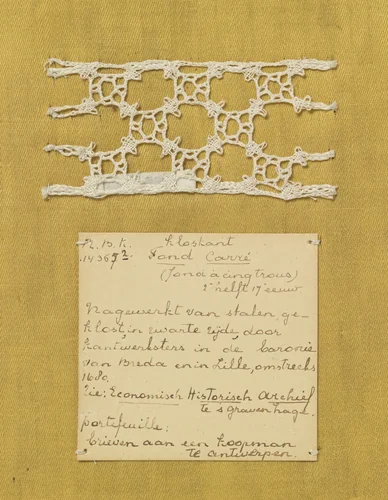 N.B.K. Kloskant
14365 2 Fond Carré
(fond a cinq trous)
2e helft 17e eeuw
Nagewerkt van stalen ge-
klost in zwarte zijde, door
kantwerksters in de baronie
van Breda en in Lille, omstreeks
1680.
Zie: Economisch Historisch Archief
te s gravenhage.
portefeuille:
brieven aan een koopman
te antwerpen.